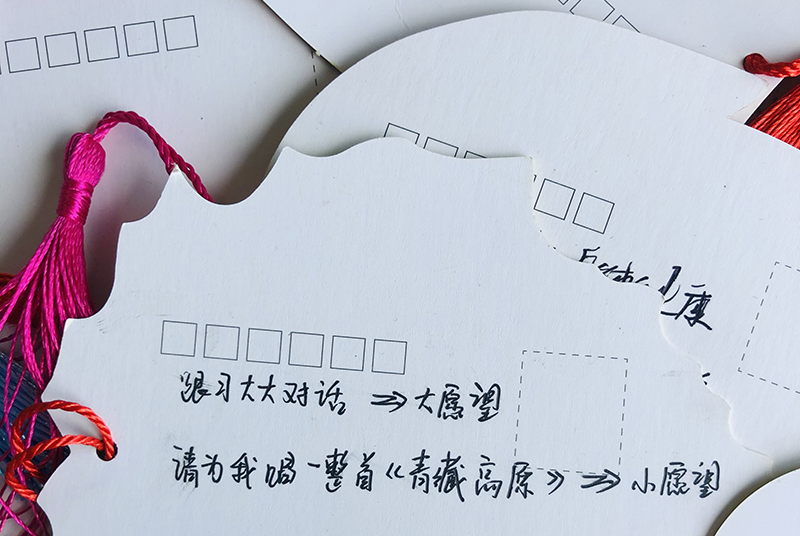 康
跟习大大对话 => 大愿望
请为我唱一整首《青藏高原》=> 小愿望